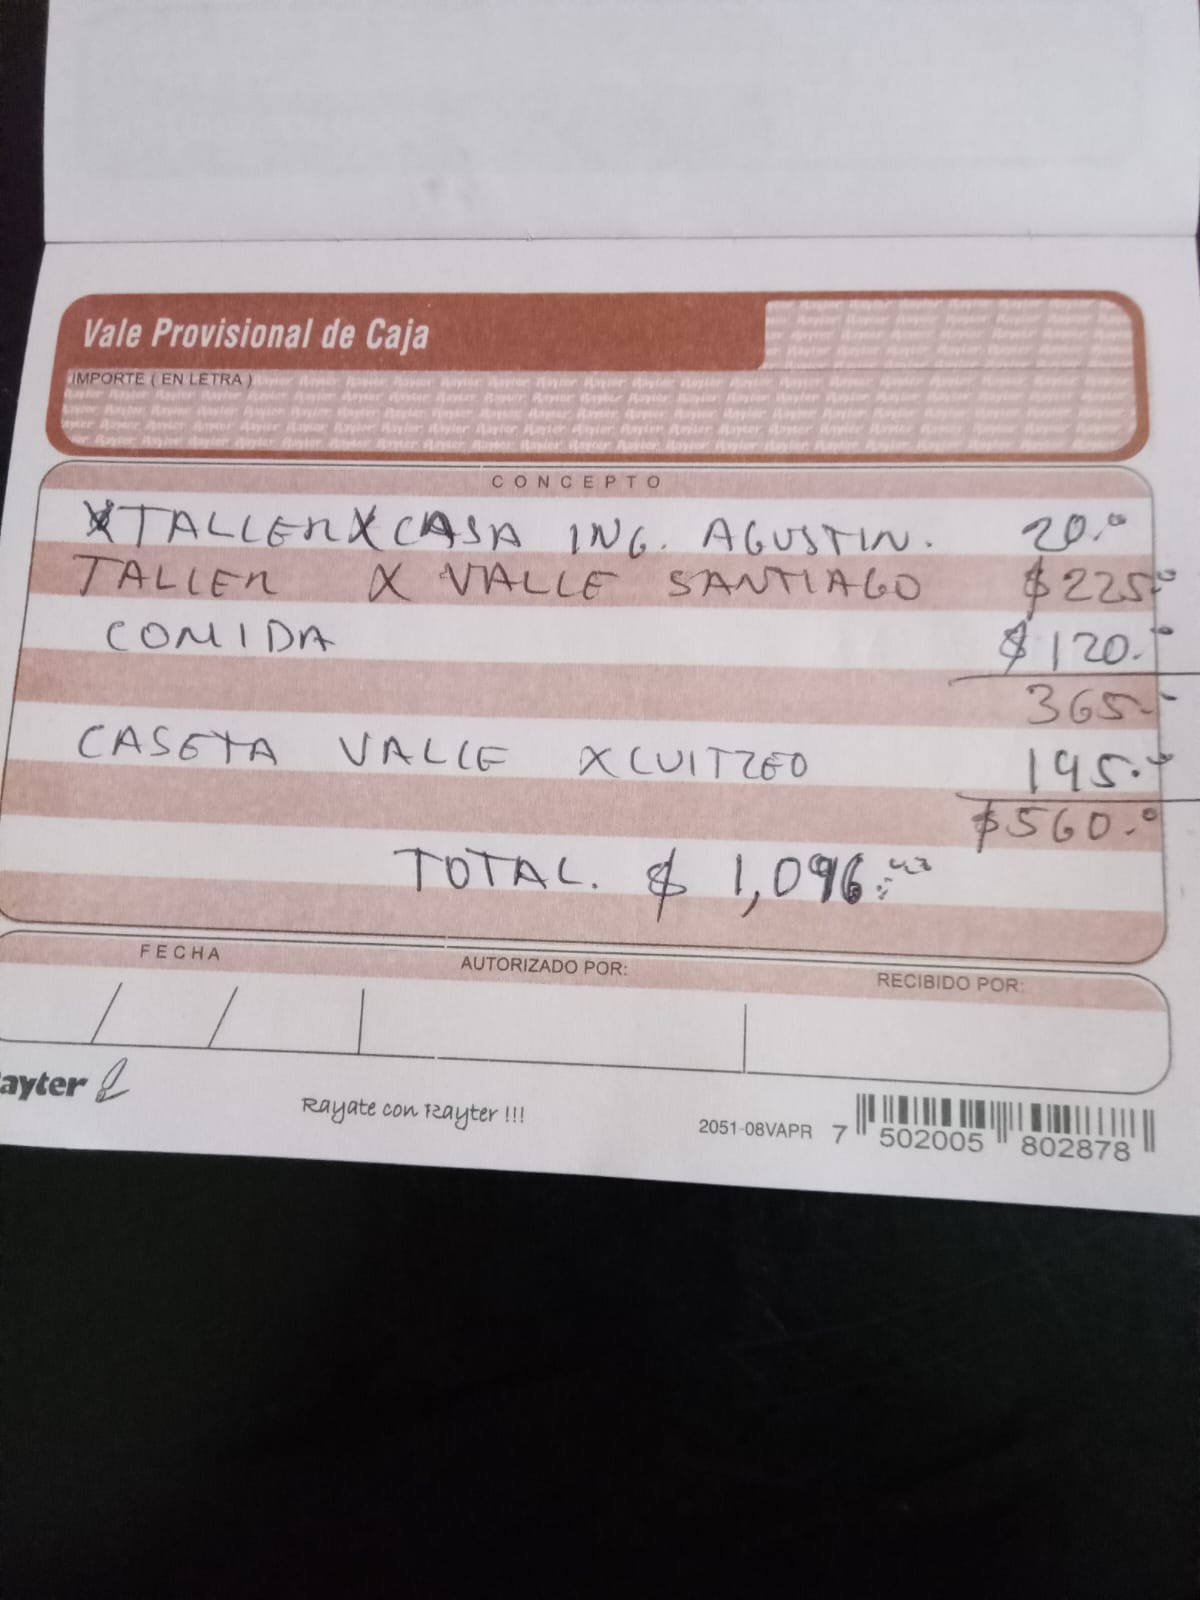 Vale Provisional de Caja
IMPORTE ( EN LETRA )
CONCEPTO
X TALLER X CASA ING. AGUSTIN. 20.º
TALLER X VALLE SANTIAGO $225.º
COMIDA $120.º
365.-
CASETA VALLE X CUITZEO 195.º
$560.º
TOTAL. $ 1,096.
FECHA AUTORIZADO POR: RECIBIDO POR:
ayter
Rayate con Rayter !!!
2051-08VAPR 7 502005 802878